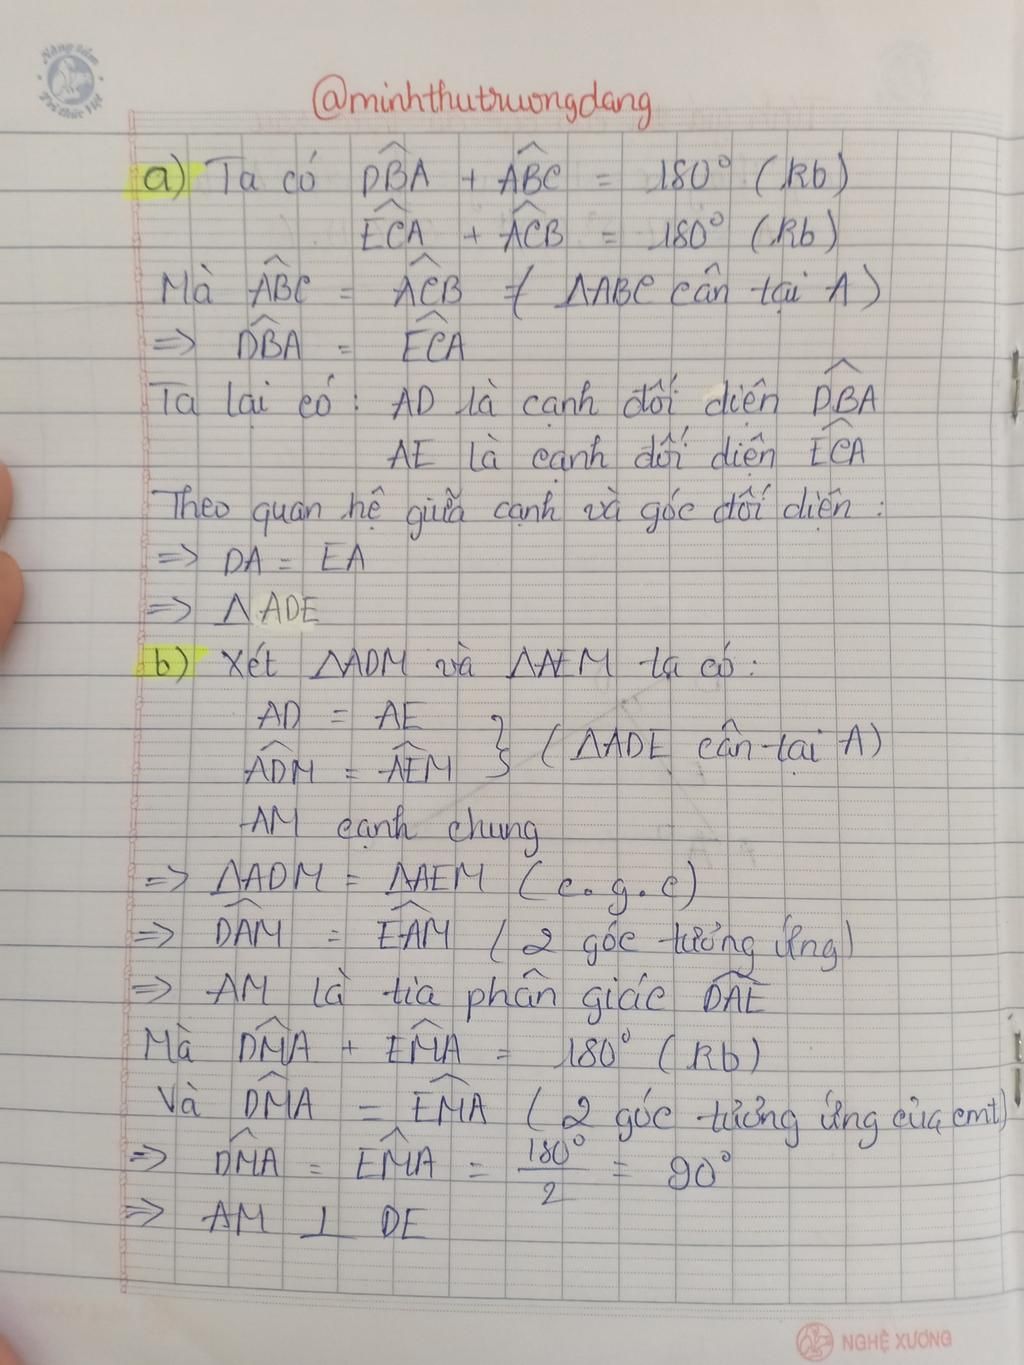 Nâng tầm
Tri thức Việt
@minhthutruongdang
a) Ta có DBA + ABC = 180° (kb)
ECA + ACB = 180° (kb)
Mà ABC = ACB (ΔABC cân tại A)
=> DBA = ECA
Ta lại có : AD là cạnh đối diện DBA
AE là cạnh đối diện ECA
Theo quan hệ giữa cạnh và góc đối diện :
=> DA = EA
=> Δ ADE
b) Xét ΔADM và ΔAEM ta có :
AD = AE
ADM = AEM } (ΔADE cân tại A)
AM cạnh chung
=> ΔADM = ΔAEM (c.g.c)
=> DAM = EAM (2 góc tương ứng)
=> AM là tia phân giác DAE
Mà DMA + EMA = 180° (kb)
Và DMA = EMA (2 góc tương ứng của cmt)
=> DMA = EMA = 180°/2 = 90°
=> AM ⊥ DE
NGHỆ XƯƠNG